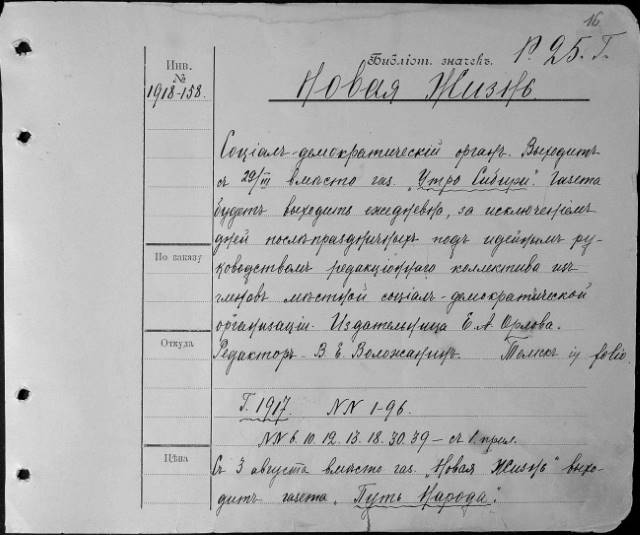 16
Библіот. значекъ. Р. 25. Г.
Инв.
№
1918-158.
Новая Жизнь.
Соціалъ-демократическій органъ. Выходитъ
съ 29/III вмѣсто газ. „Утро Сибири". Газета
будетъ выходить ежедневно, за исключеніемъ
дней послѣпраздничныхъ подъ идейнымъ ру-
ководствомъ редакціоннаго коллектива изъ
членовъ мѣстной соціалъ-демократической
организаціи. Издательница Е. А. Орлова.
Редакторъ В. Е. Воложанинъ. Томскъ in folio.
По заказу
Откуда
Г. 1917. NN 1-96.
NN 6. 10. 12. 13. 18. 30. 39 – съ 1 прил.
Цѣна
Съ 3 августа вмѣсто газ. „Новая Жизнь" выхо-
дитъ газета „Путь Народа".